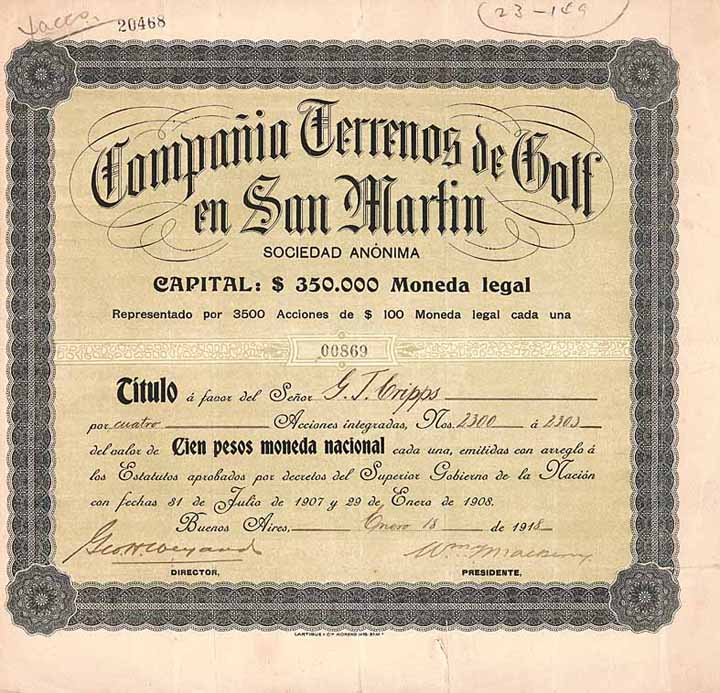 20468
23-149
Compañia Terrenos de Golf
en San Martin
SOCIEDAD ANÓNIMA
CAPITAL: $ 350.000 Moneda legal
Representado por 3500 Acciones de $ 100 Moneda legal cada una
00869
Título á favor del Señor G. T. Cripps
por cuatro Acciones integradas, Nos. 2300 á 2303
del valor de Cien pesos moneda nacional cada una, emitidas con arreglo á
los Estatutos aprobados por decretos del Superior Gobierno de la Nación
con fechas 31 de Julio de 1907 y 29 de Enero de 1908.
Buenos Aires, Enero 18 de 1918
DIRECTOR. PRESIDENTE.